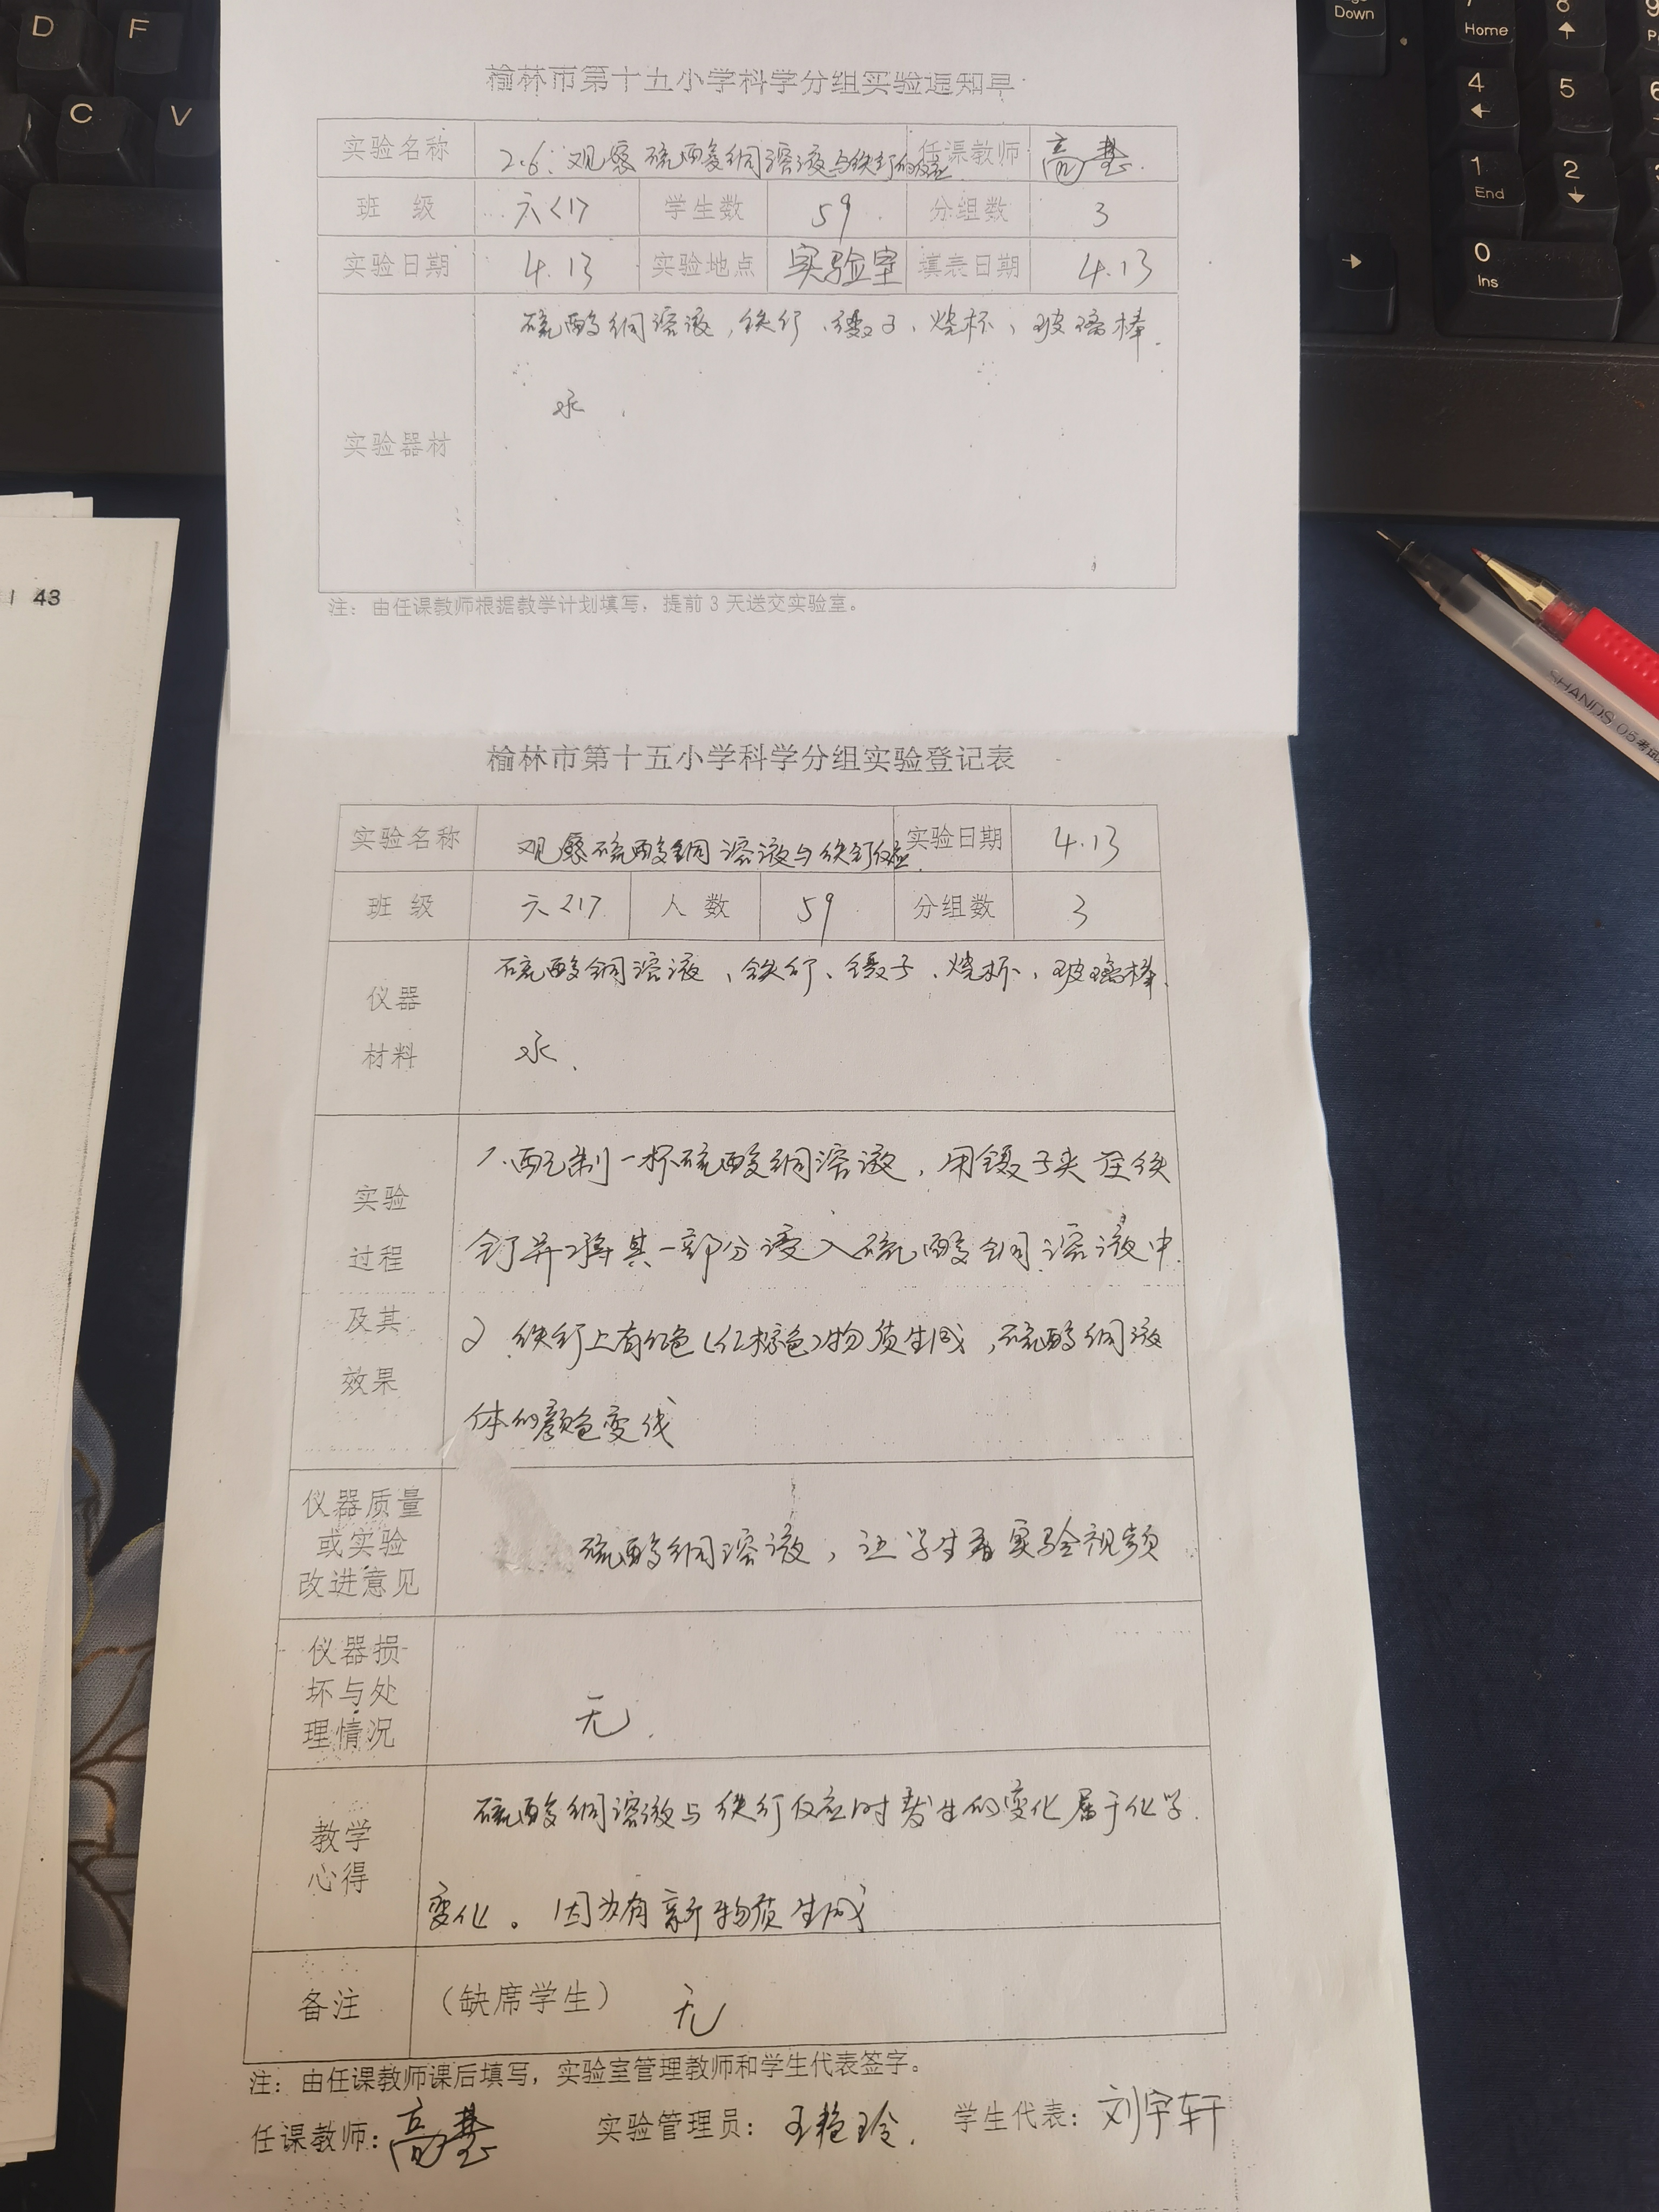 D F
C V
Down
Home
8
9
4
5
6
1
End
2
3
0
Ins
43
SHANDS 05
榆林市第十五小学科学分组实验通知单
实验名称 2.6:观察硫酸铜溶液与铁钉的反应 任课教师 高慧
班 级 六<17 学生数 59 分组数 3
实验日期 4.13 实验地点 实验室 填表日期 4.13
实验器材 硫酸铜溶液,铁钉、镊子、烧杯、玻璃棒.
水.
注:由任课教师根据教学计划填写,提前3天送交实验室。
榆林市第十五小学科学分组实验登记表
实验名称 观察硫酸铜溶液与铁钉反应 实验日期 4.13
班 级 六<17 人 数 59 分组数 3
仪器材料 硫酸铜溶液、铁钉、镊子、烧杯、玻璃棒.
水.
实验过程及其效果 1.配制一杯硫酸铜溶液,用镊子夹住铁
钉并将其一部分浸入硫酸铜溶液中.
2.铁钉上有红色(红棕色)物质生成,硫酸铜液
体的颜色变浅
仪器质量或实验改进意见 硫酸铜溶液,让学生看实验视频
仪器损坏与处理情况 无.
教学心得 硫酸铜溶液与铁钉反应时发生的变化属于化学
变化。因为有新物质生成
备注 (缺席学生) 无
注:由任课教师课后填写,实验室管理教师和学生代表签字。
任课教师:高慧 实验管理员:王艳玲. 学生代表:刘宇轩